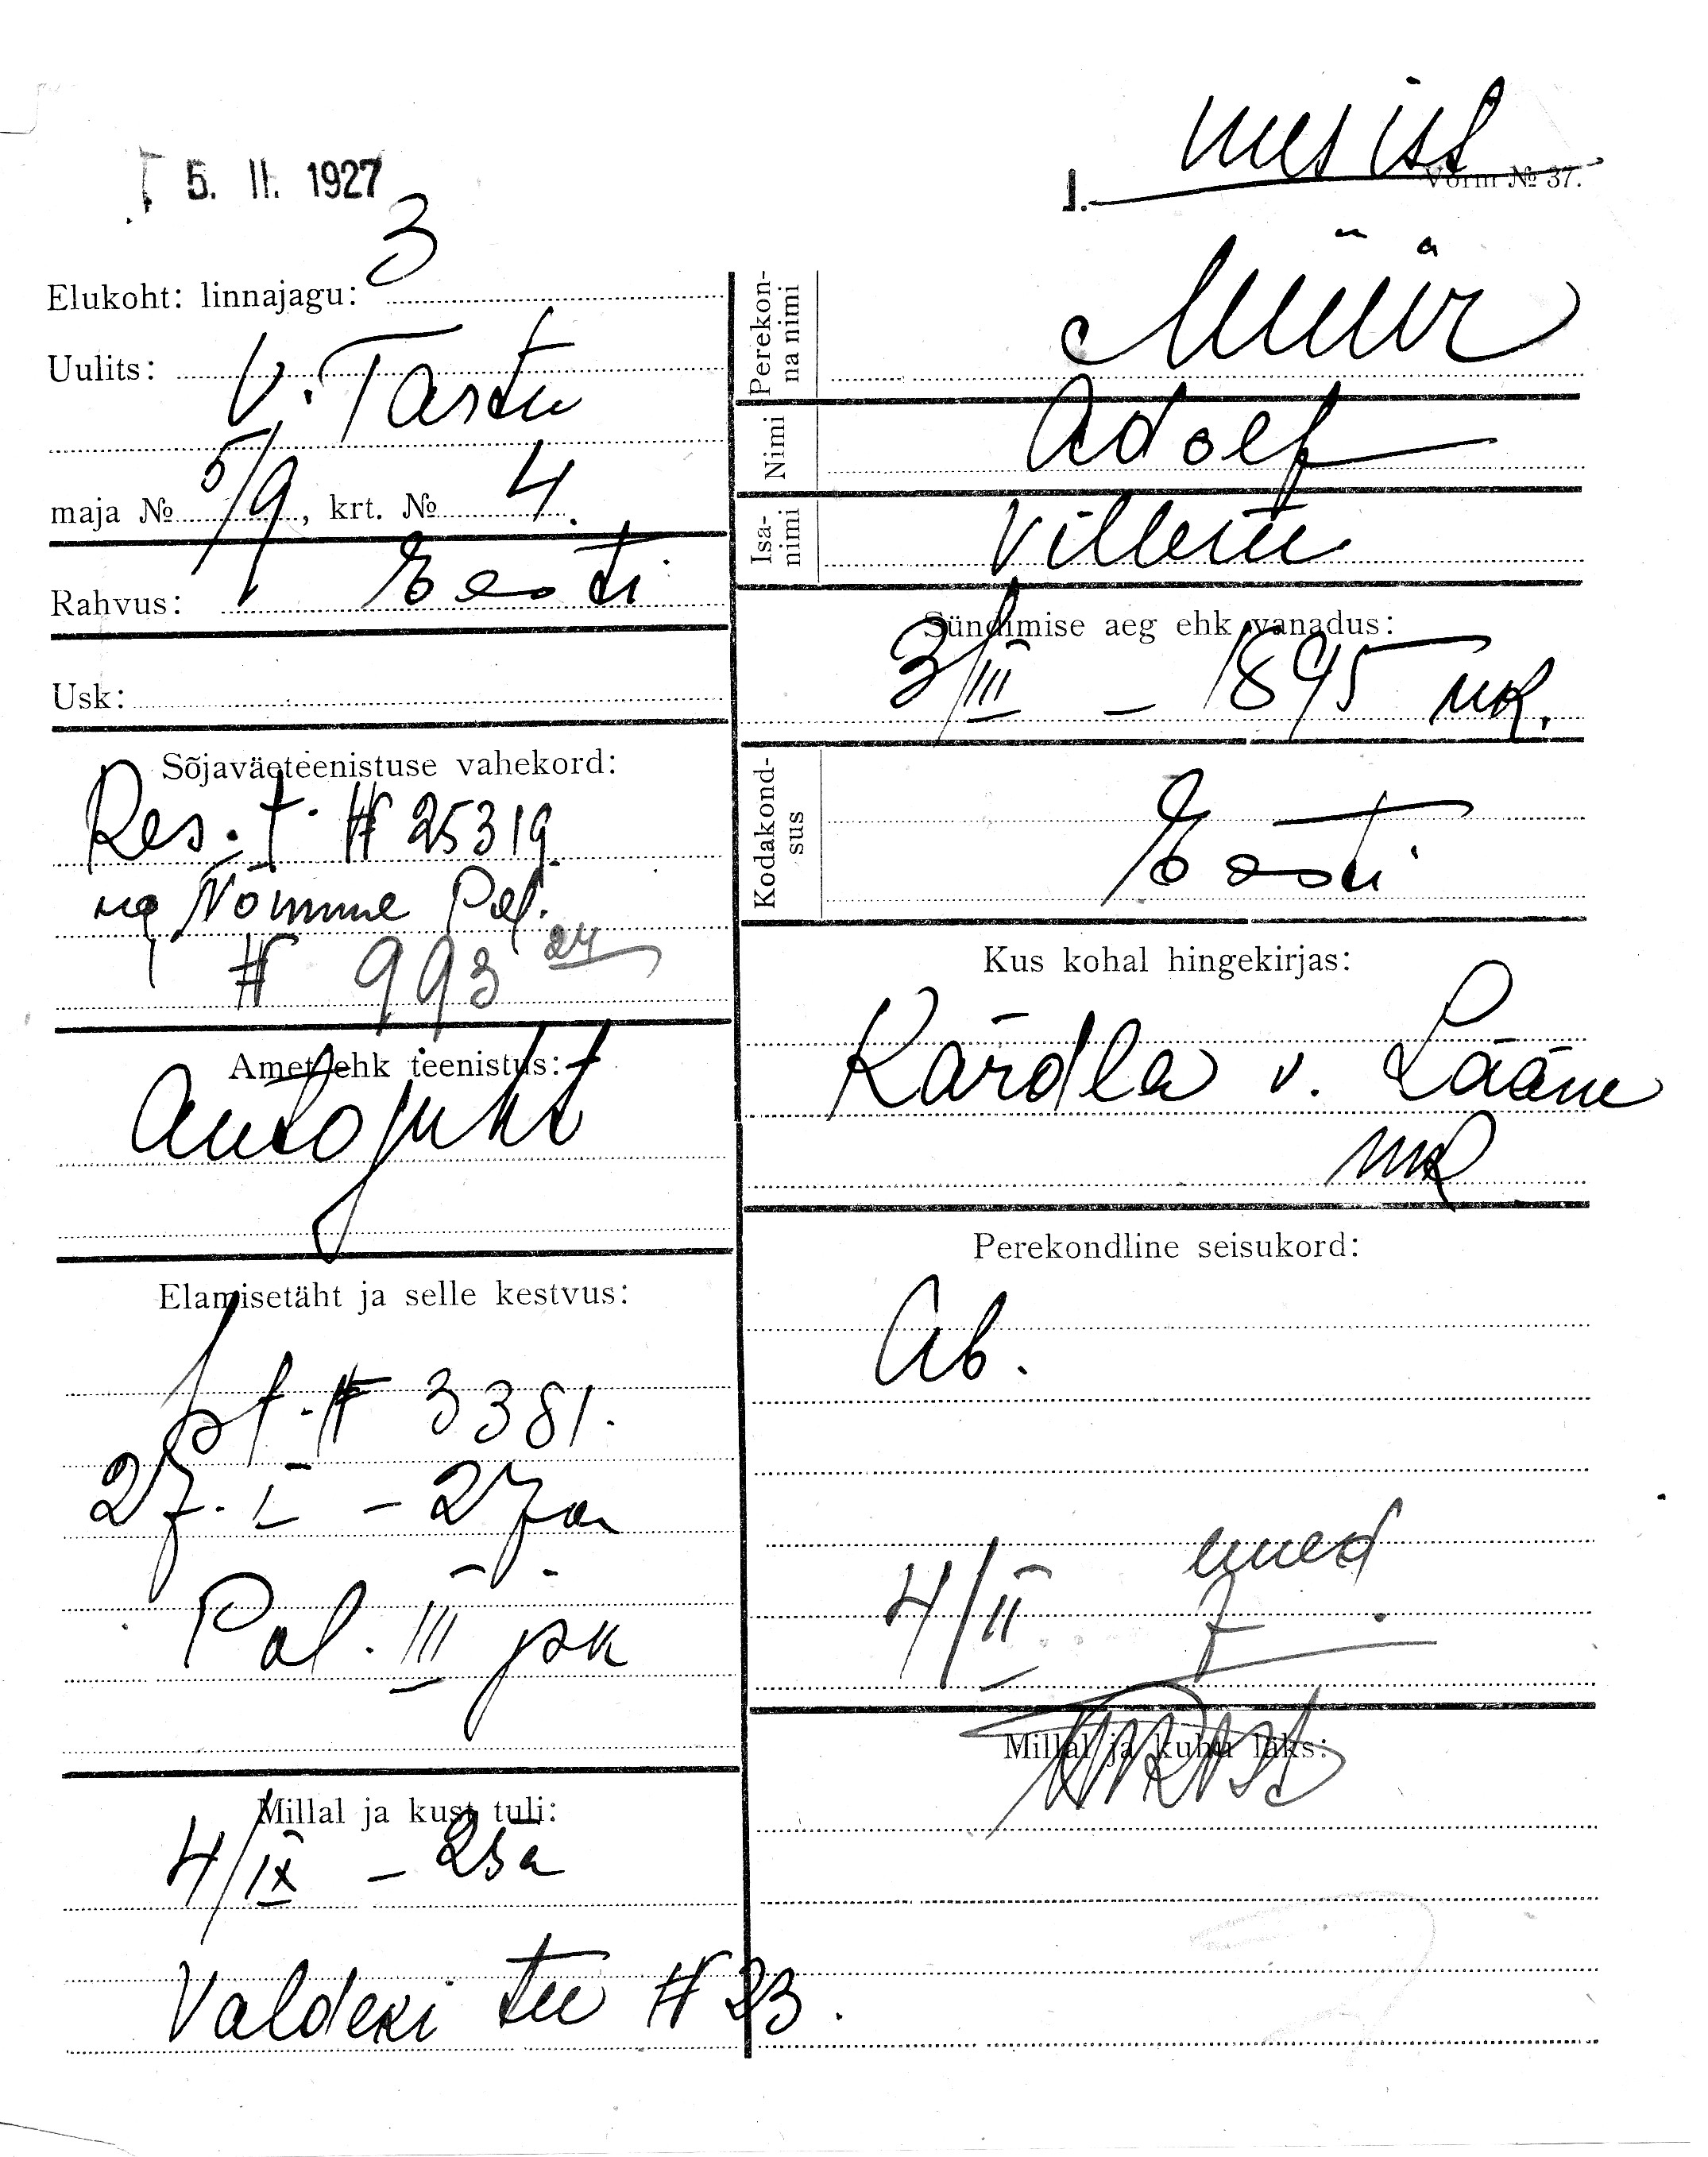 5. II. 1927
1.
Vorm № 37.
Elukoht: linnajagu: 3
Uulits: V. Tartu
maja № 5/9, krt. № 4.
Rahvus: Eesti
Usk:
Sõjaväeteenistuse vahekord:
Res. t. # 25319
Nõmme Pol.
# 993 27
Amet ehk teenistus:
Autojuht
Elamisetäht ja selle kestvus:
# 3381.
27. I - 27 a
Pol. III jsk
Millal ja kust tuli:
4/IX - 25 a
Valdeki tee # 23.
Perekonna nimi
Müür
Nimi
Adolf
Isanimi
Villem
Sündimise aeg ehk vanadus:
3/III - 1895
Kodakondsus
Eesti
Kus kohal hingekirjas:
Kärdla v. Lääne
Perekondline seisukord:
Ab.
4/II 7
Millal ja kuhu läks: